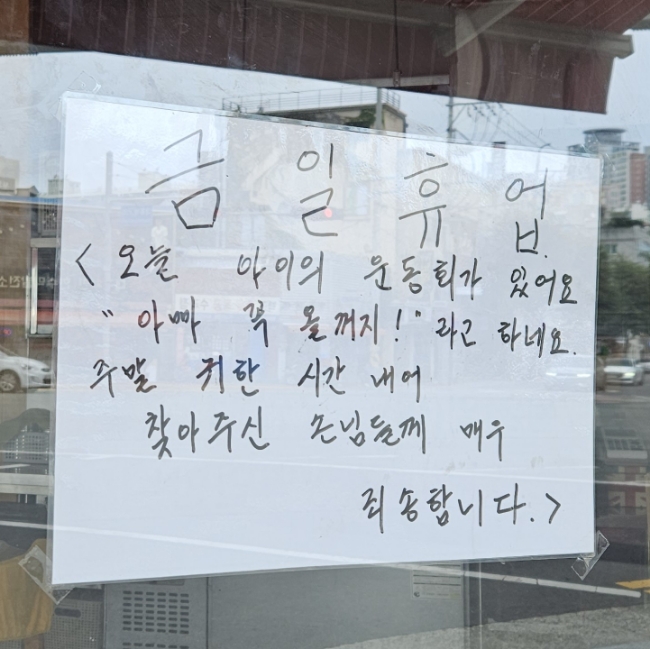 금일휴업
< 오늘 아이의 운동회가 있어요
"아빠 꼭 올꺼지!" 라고 하네요.
주말 귀한 시간 내어
찾아주신 손님들께 매우
죄송합니다.>